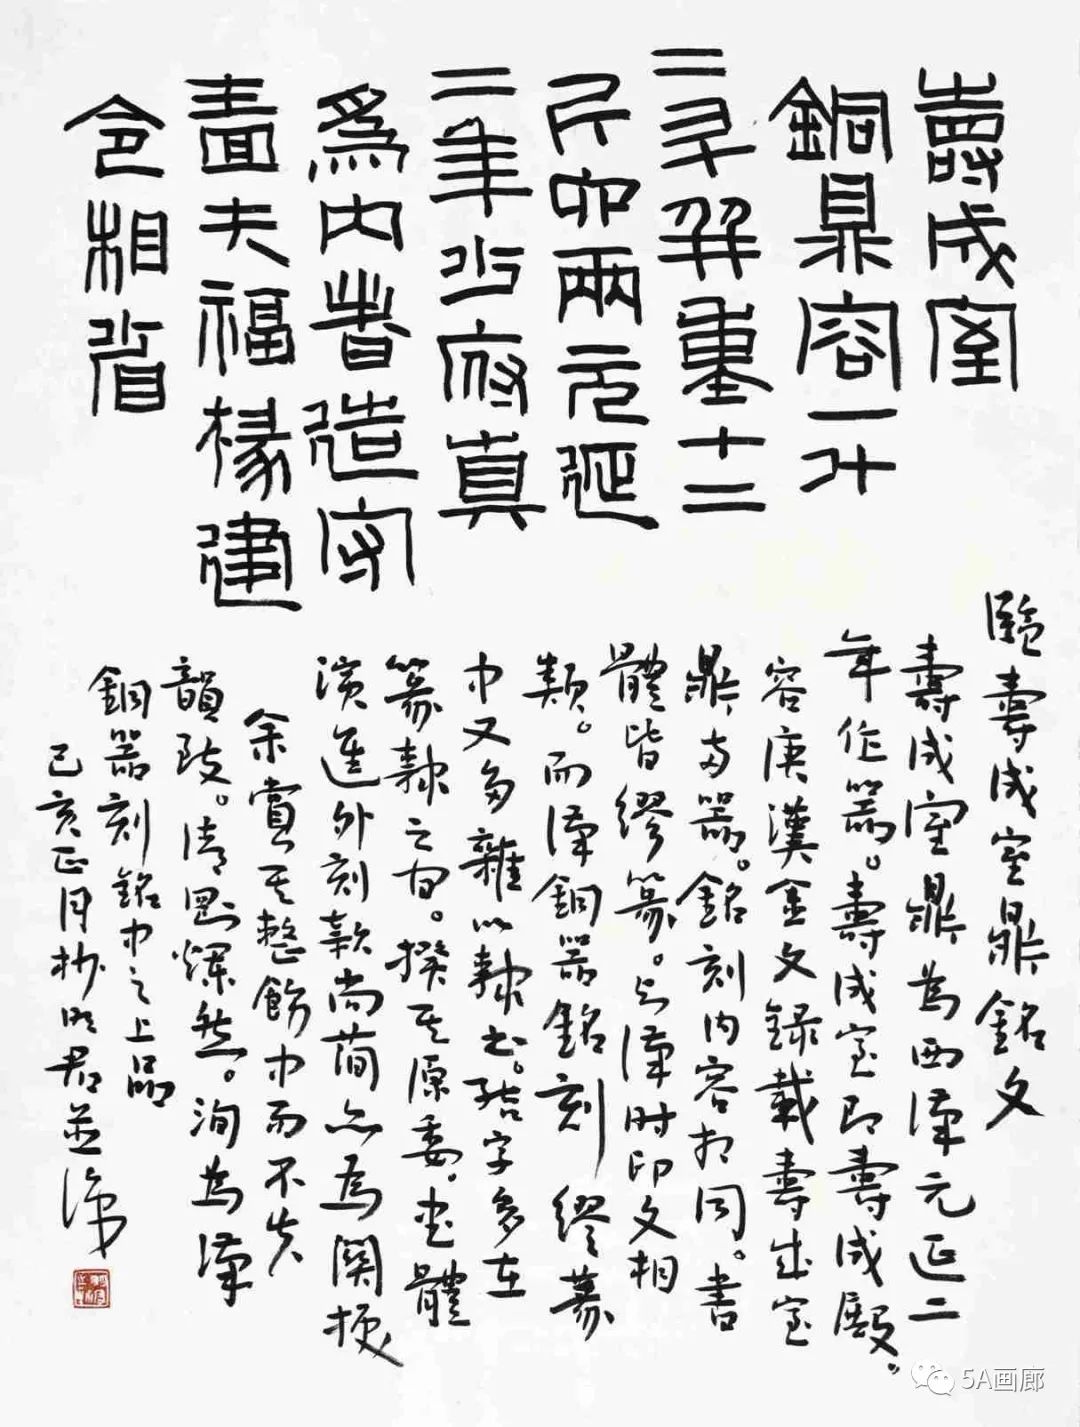 壽成室
銅鼎容一斗
二升并重十二
斤卯兩元延
二年少府真
為內者造守
嗇夫福掾建
令相省
臨壽成室鼎銘文
壽成室鼎為西漢元延二
年作器。壽成室即壽成殿。
容庚漢金文録載壽成室
鼎兩器。銘刻内容相同。書
體皆繆篆。与漢时印文相
類。而漢銅器銘刻繆篆
中又多雜以隸書。结字多在
篆隸之間。揆其原委。書體
演進外刻款尚簡亦為關捩
余賞其整飭中而不失
韻致。清剛爛然。洵為漢
銅器刻銘中之上品
己亥正月抄明君並識
5A画廊